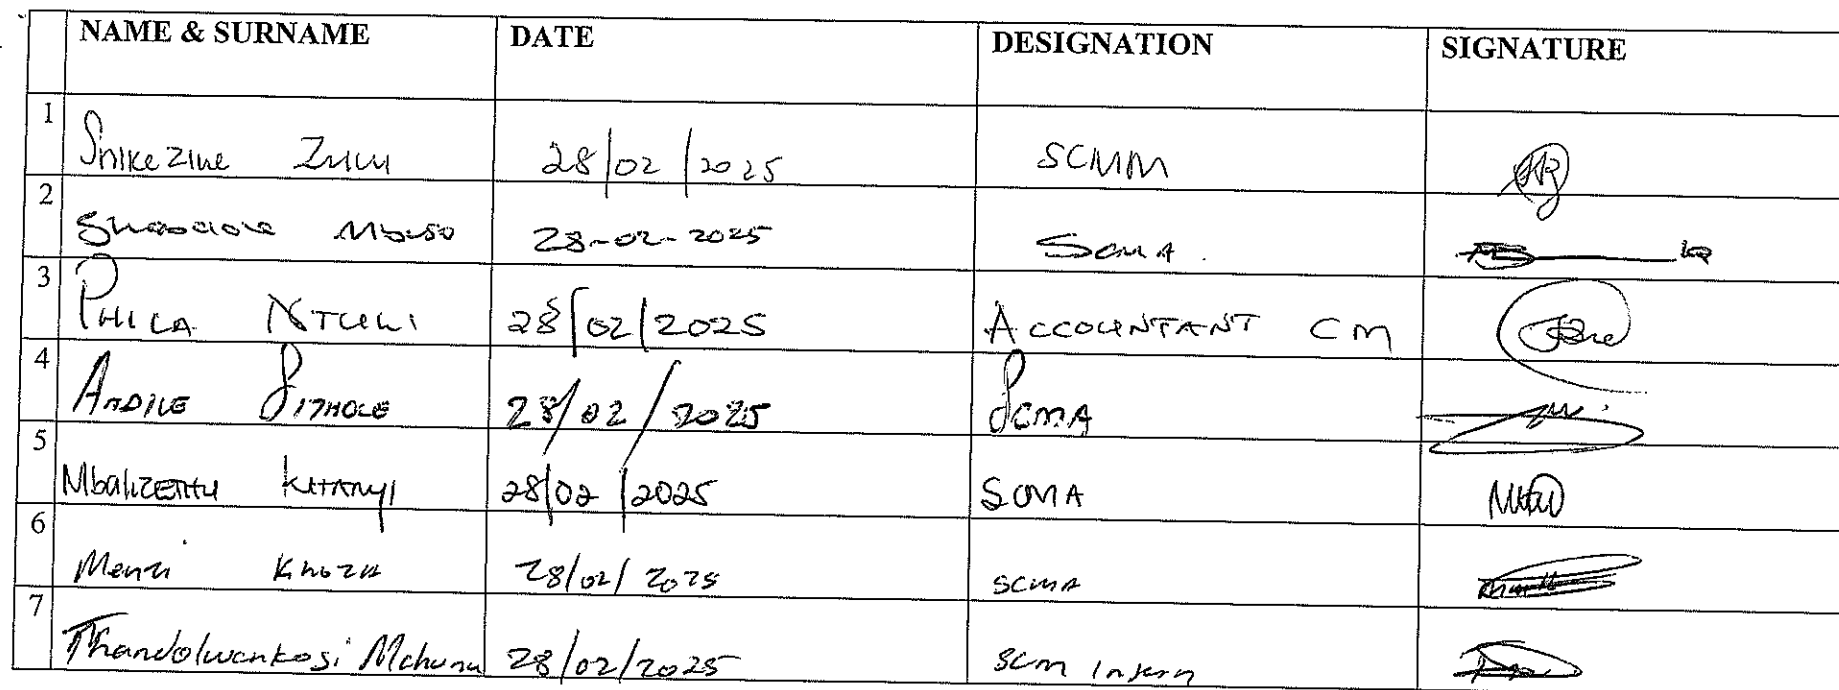 NAME & SURNAME DATE DESIGNATION SIGNATURE
1 Snikeziwe Zulu 28/02/2025 SCMM
2 28-02-2025 SCMA
3 PHILA NTULI 28/02/2025 ACCOUNTANT CM
4 ANDILE SITHOLE 28/02/2025 SCMA
5 MbaliZETHU KHANYI 28/02/2025 SCMA
6 Menzi Khoza 28/02/2025 SCMA
7 Thandolwenkosi Mchunu 28/02/2025 SCM Intern